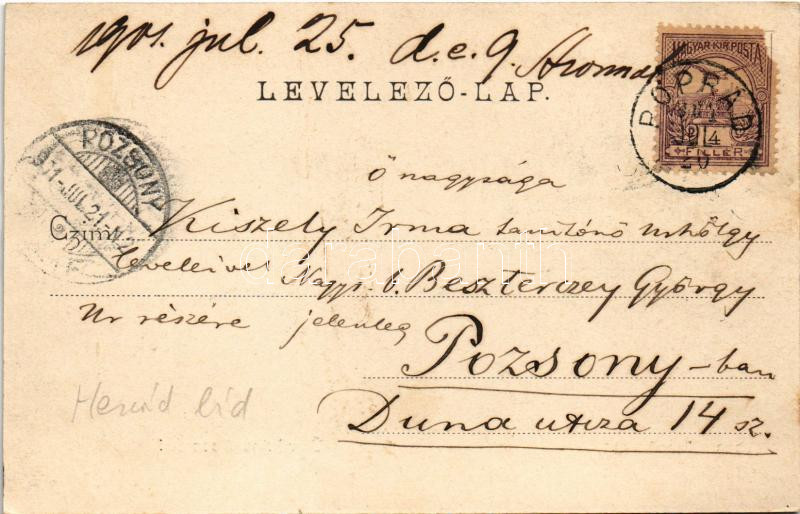 1901. jul. 25. d.e. 9.
LEVELEZŐ-LAP.
MAGYAR KIR. POSTA
FILLÉR
POPRÁD
POZSONY
Ő nagysága
Czim Kiszely Irma tanítónő úrhölgy
leveleivel Nagys. b. Beszterczey György
Úr részére jelenleg
Pozsony-ban
Duna utcza 14 sz.
Hernád híd
darabanth